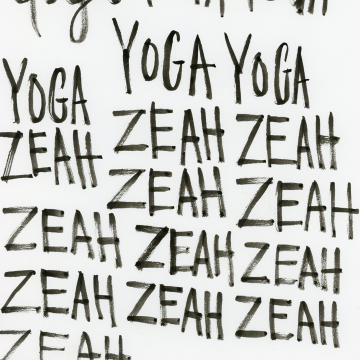 YOGA YOGA YOGA
ZEAH ZEAH ZEAH
ZEAH ZEAH
ZEAH ZEAH ZEAH
ZEAH ZEAH ZEAH
ZEAH